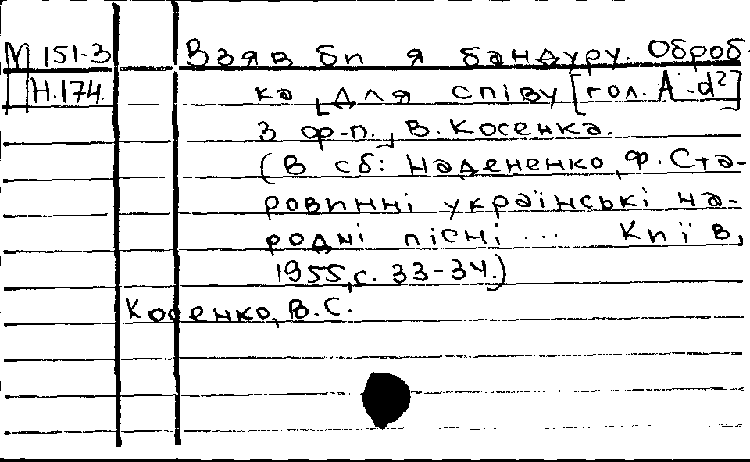 М 151-3 Взяв би я бандуру. Оброб-
Н.174 ка для співу [гол. A-d²]
з ф-п. В. Косенка.
(В сб: Надененко, Ф. Ста-
ровинні українські на-
родні пісні... Київ,
1955, с. 33-34.)
Косенко, В.С.